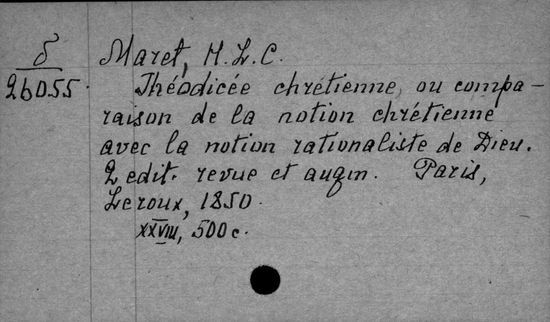 δ Maret, H. L. C.
26055. Théodicée chrétienne, ou compa-
raison de la notion chrétienne
avec la notion rationaliste de Dieu.
2 edit. revue et augm. Paris,
Leroux, 1850.
XXVIII, 500 c.